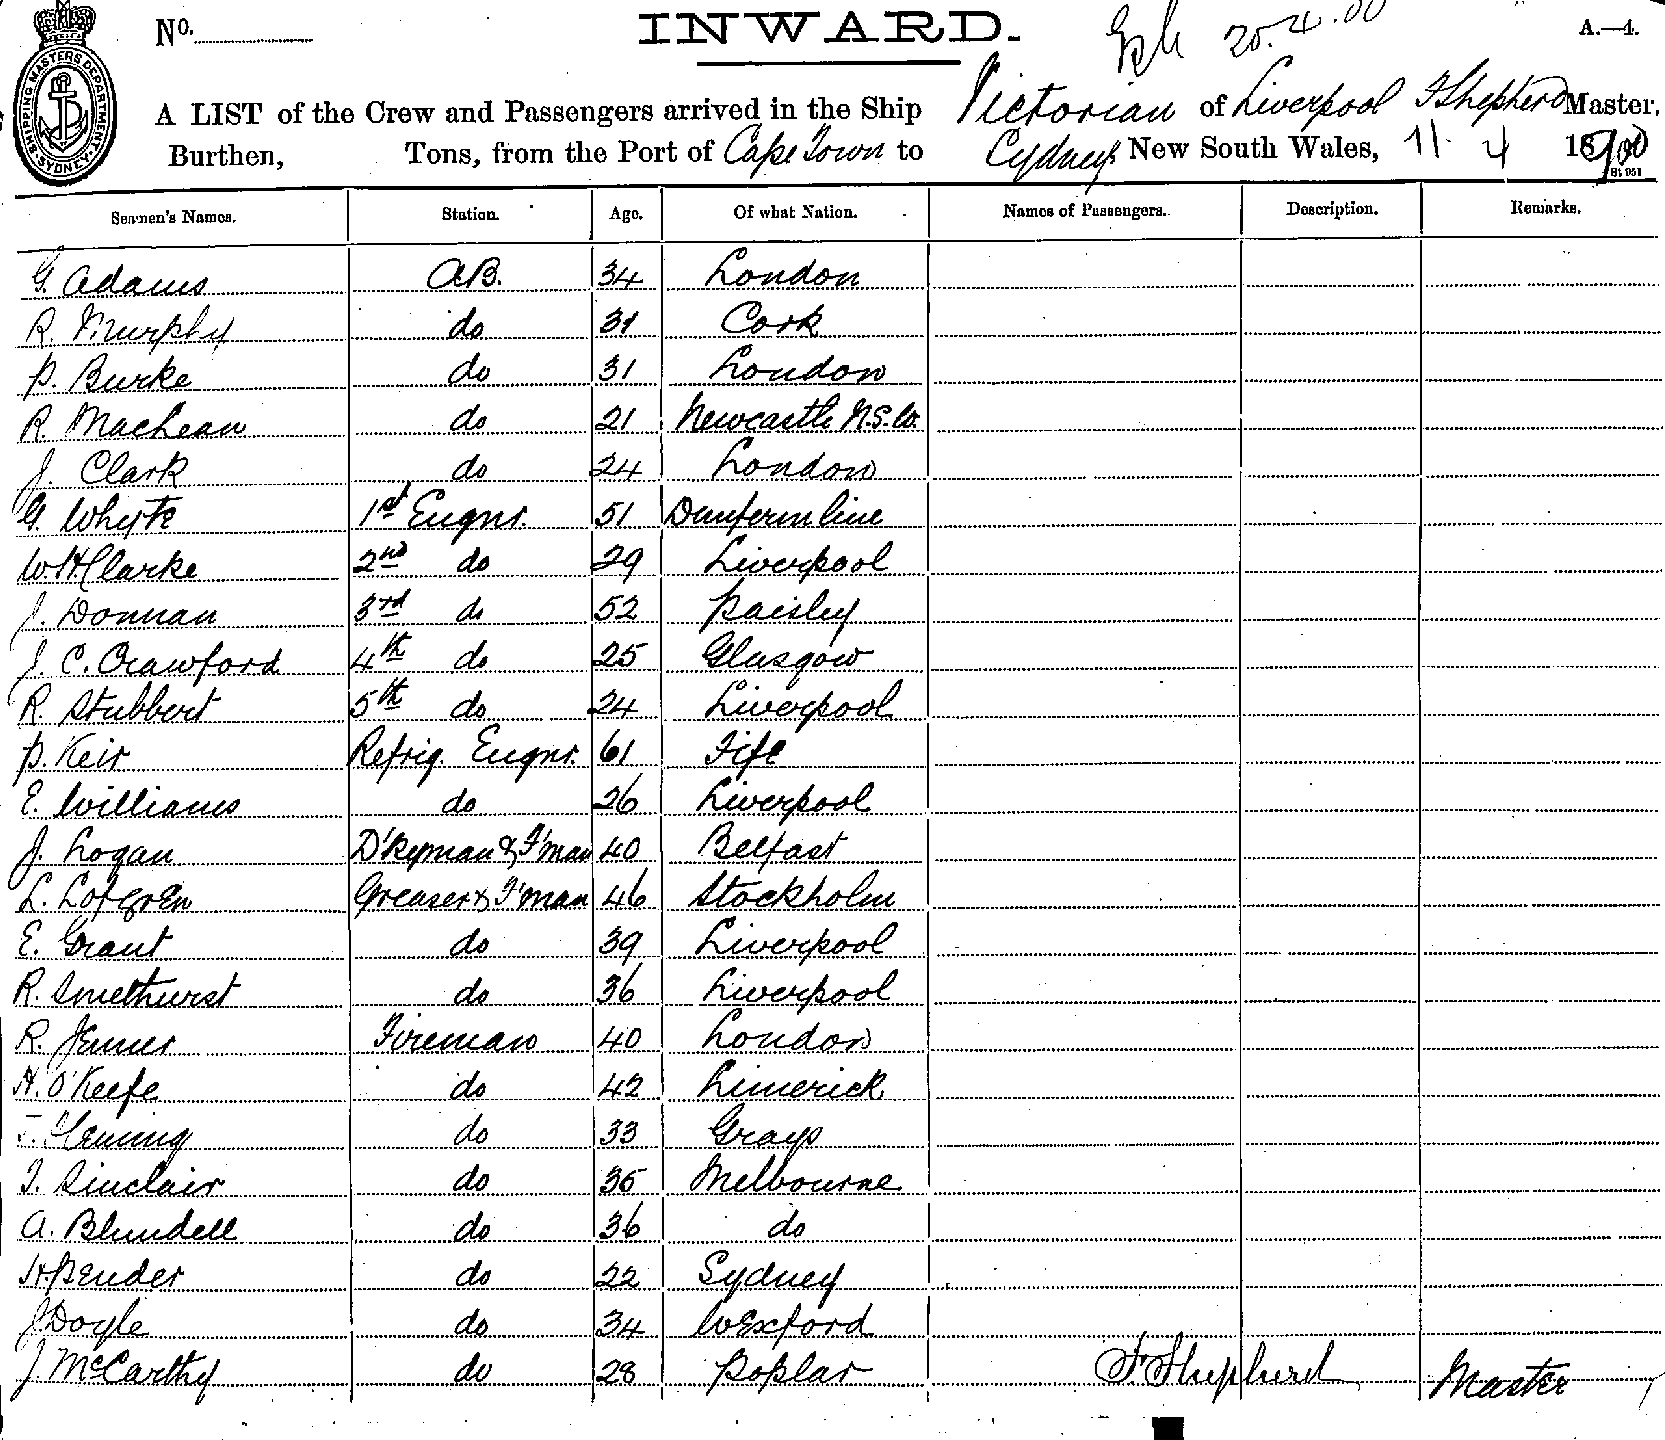 No. INWARD. 20.4.00 A.—4.
SHIPPING MASTERS DEPARTMENT SYDNEY
A LIST of the Crew and Passengers arrived in the Ship Victorian of Liverpool F Shepherd Master,
Burthen, Tons, from the Port of Cape Town to Sydney New South Wales, 11 . 4 1900
Seamen's Names. Station. Age. Of what Nation. Names of Passengers. Description. Remarks.
G. Adams A.B. 34 London
R. Murphy do 31 Cork
P. Burke do 31 London
R. MacLean do 21 Newcastle N.S.W.
J. Clark do 24 London
G. Whyte 1st Engnr. 51 Dunfermline
W.H. Clarke 2nd do 29 Liverpool
J. Donnan 3rd do 52 Paisley
J. C. Crawford 4th do 25 Glasgow
R Stubbert 5th do 24 Liverpool
P. Keir Refrig. Engnr. 61 Fife
E. Williams do 26 Liverpool
J. Logan D'kyman & F'man 40 Belfast
L. Lofgren Greaser & F'man 46 Stockholm
E. Grant do 39 Liverpool
R. Smethurst do 36 Liverpool
R. Jenner Fireman 40 London
H. O'Keefe do 42 Limerick
Fleming do 33 Grays
T. Sinclair do 35 Melbourne
A. Blundell do 36 do
H. Pender do 22 Sydney
J Doyle do 34 Wexford
J McCarthy do 28 Poplar F. Shepherd Master